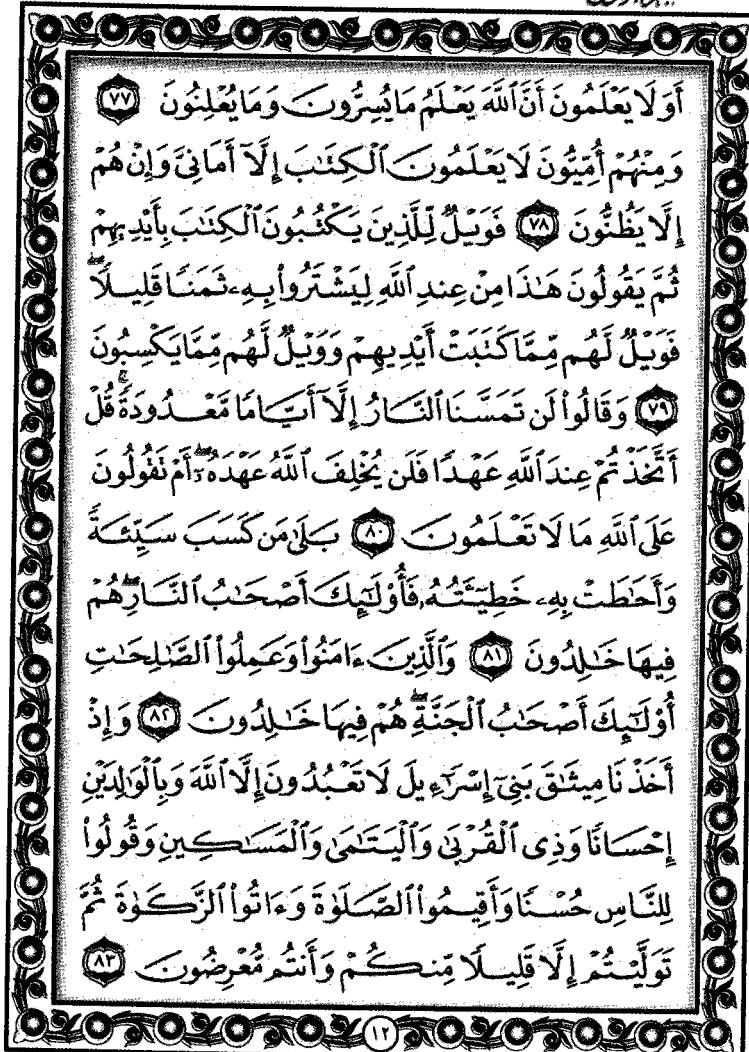 أَوَلَا يَعْلَمُونَ أَنَّ ٱللَّهَ يَعْلَمُ مَا يُسِرُّونَ وَمَا يُعْلِنُونَ ٧٧
وَمِنْهُمْ أُمِّيُّونَ لَا يَعْلَمُونَ ٱلْكِتَٰبَ إِلَّآ أَمَانِىَّ وَإِنْ هُمْ
إِلَّا يَظُنُّونَ ٧٨ فَوَيْلٌ لِّلَّذِينَ يَكْتُبُونَ ٱلْكِتَٰبَ بِأَيْدِيهِمْ
ثُمَّ يَقُولُونَ هَٰذَا مِنْ عِندِ ٱللَّهِ لِيَشْتَرُوا۟ بِهِۦ ثَمَنًا قَلِيلًا ۖ
فَوَيْلٌ لَّهُم مِّمَّا كَتَبَتْ أَيْدِيهِمْ وَوَيْلٌ لَّهُم مِّمَّا يَكْسِبُونَ
٧٩ وَقَالُوا۟ لَن تَمَسَّنَا ٱلنَّارُ إِلَّآ أَيَّامًا مَّعْدُودَةً ۚ قُلْ
أَتَّخَذْتُمْ عِندَ ٱللَّهِ عَهْدًا فَلَن يُخْلِفَ ٱللَّهُ عَهْدَهُۥٓ ۖ أَمْ تَقُولُونَ
عَلَى ٱللَّهِ مَا لَا تَعْلَمُونَ ٨٠ بَلَىٰ مَن كَسَبَ سَيِّئَةً
وَأَحَٰطَتْ بِهِۦ خَطِيٓـَٔتُهُۥ فَأُو۟لَٰٓئِكَ أَصْحَٰبُ ٱلنَّارِ ۖ هُمْ
فِيهَا خَٰلِدُونَ ٨١ وَٱلَّذِينَ ءَامَنُوا۟ وَعَمِلُوا۟ ٱلصَّٰلِحَٰتِ
أُو۟لَٰٓئِكَ أَصْحَٰبُ ٱلْجَنَّةِ ۖ هُمْ فِيهَا خَٰلِدُونَ ٨٢ وَإِذْ
أَخَذْنَا مِيثَٰقَ بَنِىٓ إِسْرَٰٓءِيلَ لَا تَعْبُدُونَ إِلَّا ٱللَّهَ وَبِٱلْوَٰلِدَيْنِ
إِحْسَانًا وَذِى ٱلْقُرْبَىٰ وَٱلْيَتَٰمَىٰ وَٱلْمَسَٰكِينِ وَقُولُوا۟
لِلنَّاسِ حُسْنًا وَأَقِيمُوا۟ ٱلصَّلَوٰةَ وَءَاتُوا۟ ٱلزَّكَوٰةَ ثُمَّ
تَوَلَّيْتُمْ إِلَّا قَلِيلًا مِّنكُمْ وَأَنتُم مُّعْرِضُونَ ٨٣
١٢